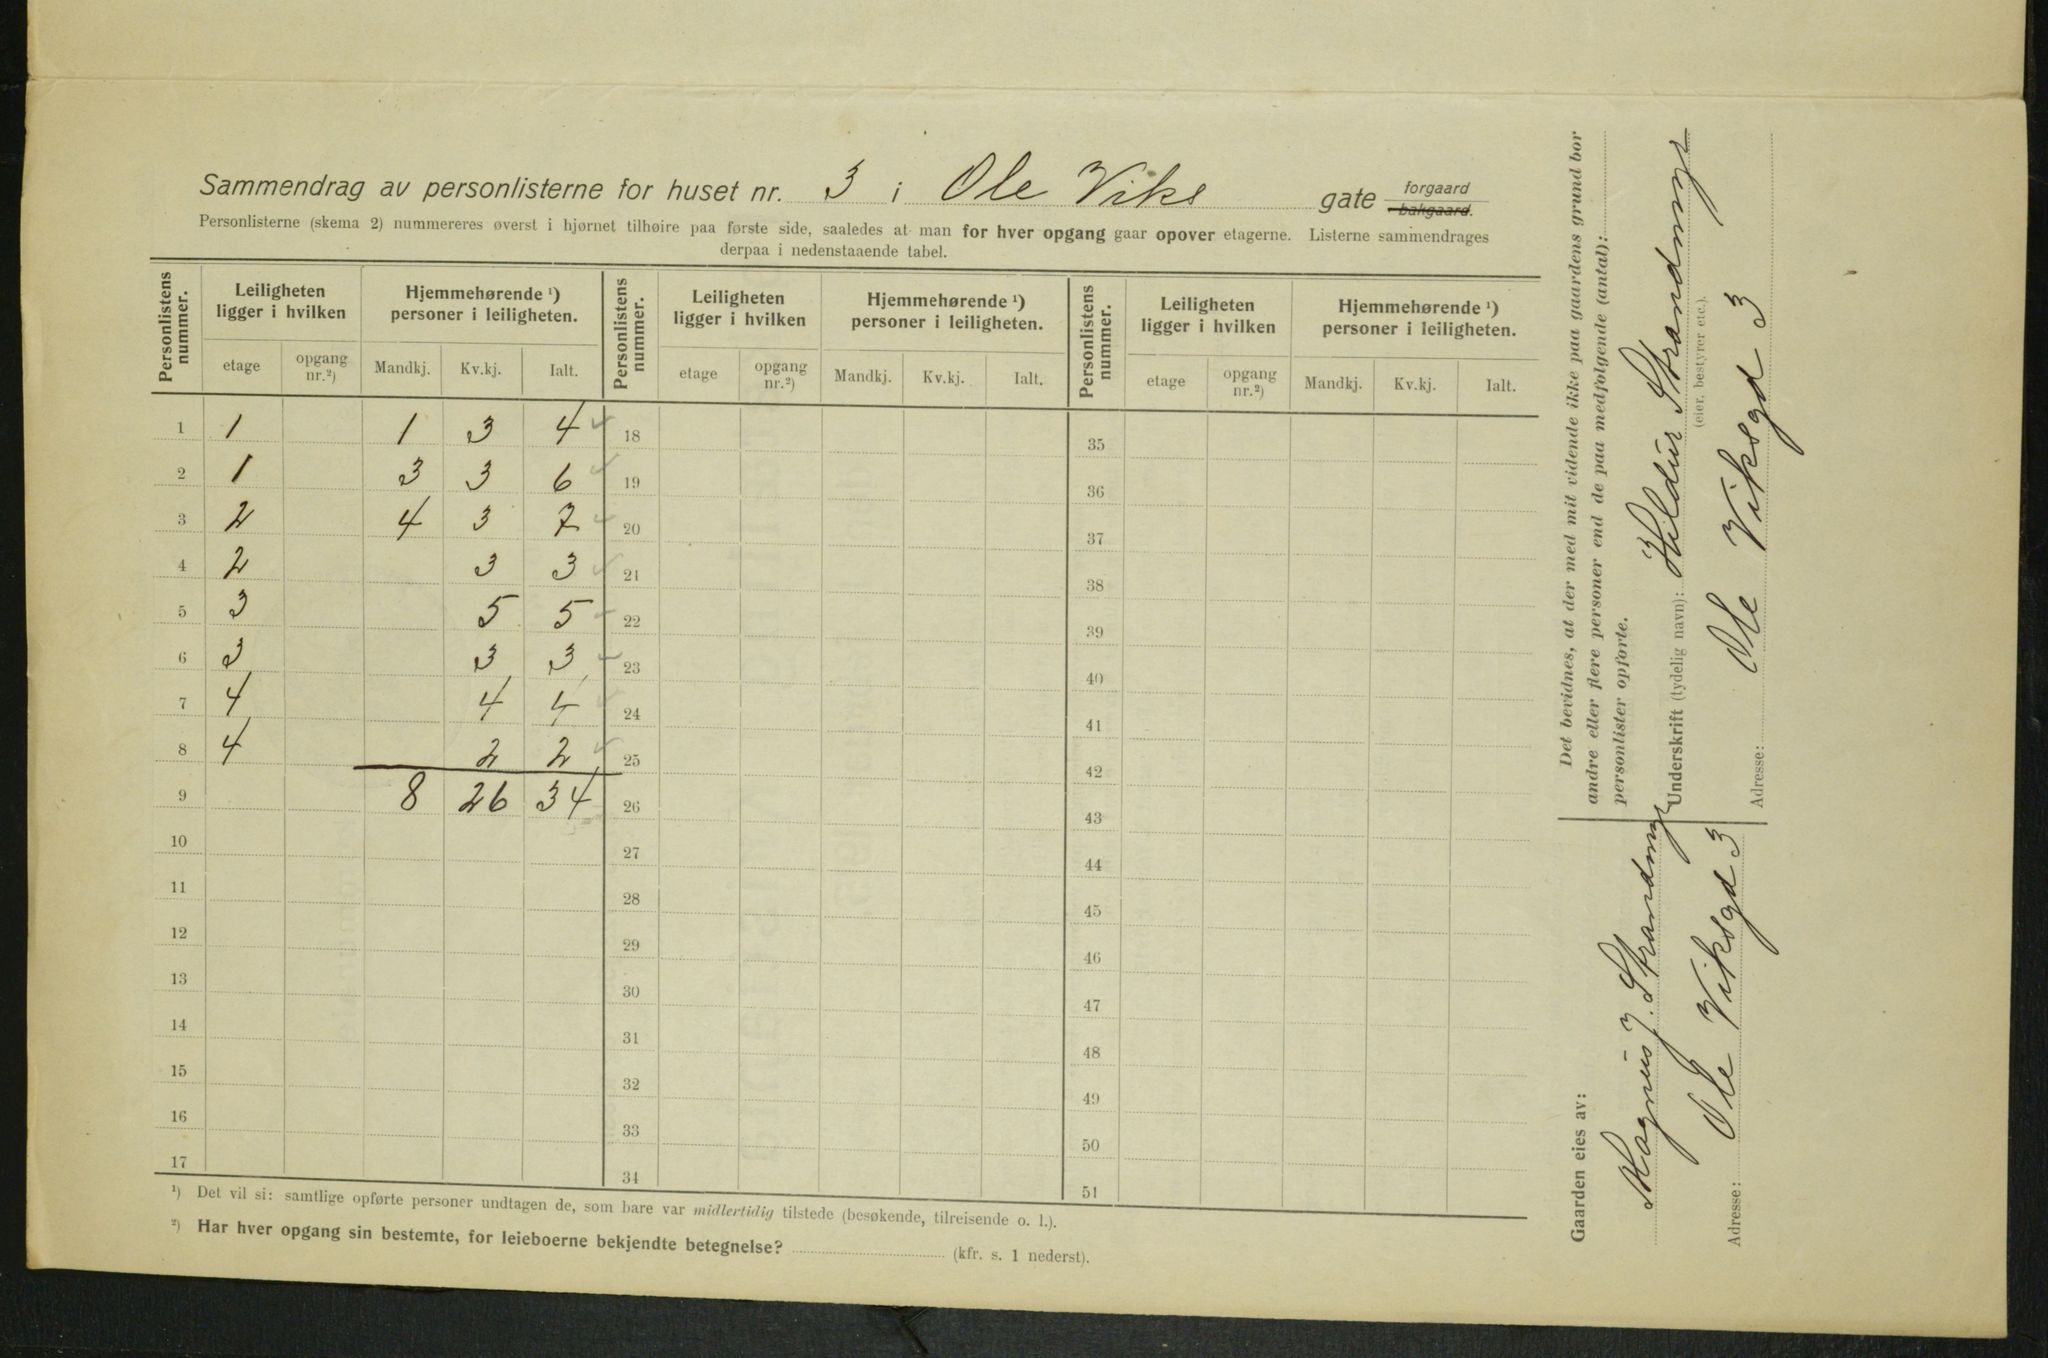 Sammendrag av personlisterne for huset nr. 3 i Ole Viks gate forgaard bakgaard.
Personlisterne (skema 2) nummereres øverst i hjørnet tilhøire paa første side, saaledes at man for hver opgang gaar opover etagerne. Listerne sammendrages
derpaa i nedenstaaende tabel.
Personlistens nummer. Leiligheten ligger i hvilken Hjemmehørende ¹) personer i leiligheten. Personlistens nummer. Leiligheten ligger i hvilken Hjemmehørende ¹) personer i leiligheten. Personlistens nummer. Leiligheten ligger i hvilken Hjemmehørende ¹) personer i leiligheten.
etage opgang nr.²) Mandkj. Kv.kj. Ialt. etage opgang nr.²) Mandkj. Kv.kj. Ialt. etage opgang nr.²) Mandkj. Kv.kj. Ialt.
1 1 1 3 4 18 35
2 1 3 3 6 19 36
3 2 4 3 7 20 37
4 2 3 3 21 38
5 3 5 5 22 39
6 3 3 3 23 40
7 4 4 4 24 41
8 4 2 2 25 42
9 8 26 34 26 43
10 27 44
11 28 45
12 29 46
13 30 47
14 31 48
15 32 49
16 33 50
17 34 51
¹) Det vil si: samtlige opførte personer undtagen de, som bare var midlertidig tilstede (besøkende, tilreisende o. l.).
²) Har hver opgang sin bestemte, for leieboerne bekjendte betegnelse? (kfr. s. 1 nederst).
Det bevidnes, at der med mit vidende ikke paa gaardens grund bor
andre eller flere personer end de paa medfølgende (antal):
personlister opførte.
Underskrift (tydelig navn): Hildur Strandmyr
(eier, bestyrer etc.).
Ole Viksgd 3
Adresse:
Gaarden eies av:
Magnus J. Strandmyr
Ole Viksgd 3
Adresse: